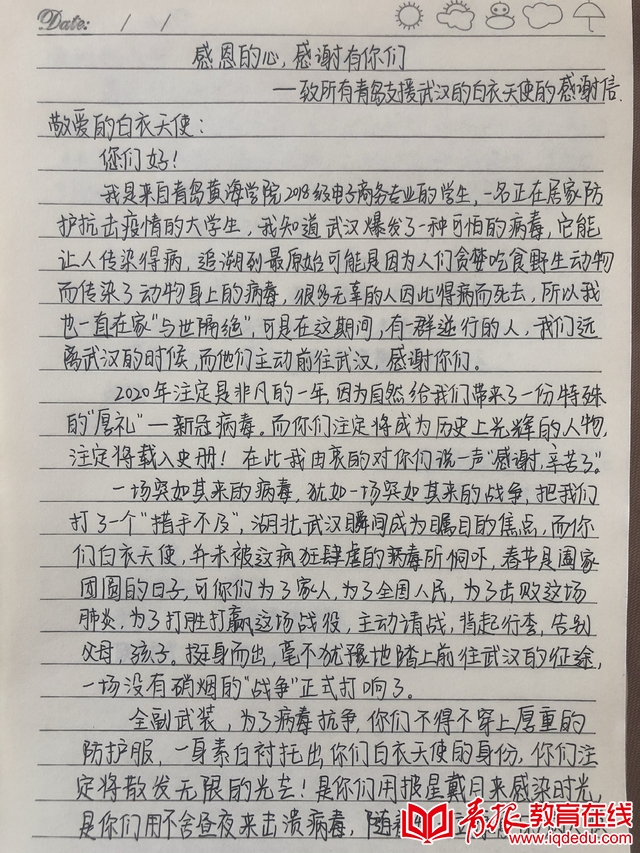 Date: / /
感恩的心,感谢有你们
—致所有青岛支援武汉的白衣天使的感谢信.
敬爱的白衣天使:
你们好!
我是来自青岛黄海学院2018级电子商务专业的学生,一名正在居家防
护抗击疫情的大学生,我知道武汉爆发了一种可怕的病毒,它能
让人传染得病,追溯到最原始可能是因为人们贪婪吃食野生动物
而传染了动物身上的病毒,很多无辜的人因此得病而死去,所以我
也一直在家"与世隔绝",可是在这期间,有一群逆行的人,我们远
离武汉的时候,而他们主动前往武汉,感谢你们。
2020年注定是非凡的一年,因为自然给我们带来了一份特殊
的"厚礼"—新冠病毒。而你们注定将成为历史上光辉的人物,
注定将载入史册!在此我由衷的对你们说一声"感谢,辛苦了"。
一场突如其来的病毒,犹如一场突如其来的战争,把我们
打了一个"措手不及",湖北武汉瞬间成为瞩目的焦点,而你
们白衣天使,并未被这疯狂肆虐的病毒所恫吓,春节是阖家
团圆的日子,可你们为了家人,为了全国人民,为了击败这场
肺炎,为了打胜打赢这场战役,主动请战,背起行李,告别
父母,孩子。挺身而出,毫不犹豫地踏上前往武汉的征途,
一场没有硝烟的"战争"正式打响了。
全副武装,为了病毒抗争,你们不得不穿上厚重的
防护服,一身素白衬托出你们白衣天使的身份,你们注
定将散发无限的光芒!是你们用披星戴月来感染时光,
是你们用不舍昼夜来击溃病毒,随
青报教育在线
www.iqdedu.com